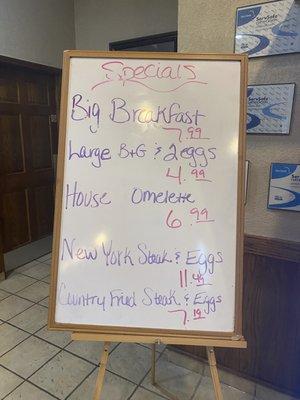 Specials
Big Breakfast
7.99
Large B+G & 2 eggs
4.99
House Omelette
6.99
New York Steak & Eggs
11.49
Country Fried Steak & Eggs
7.19
ServSafe
ServSafe